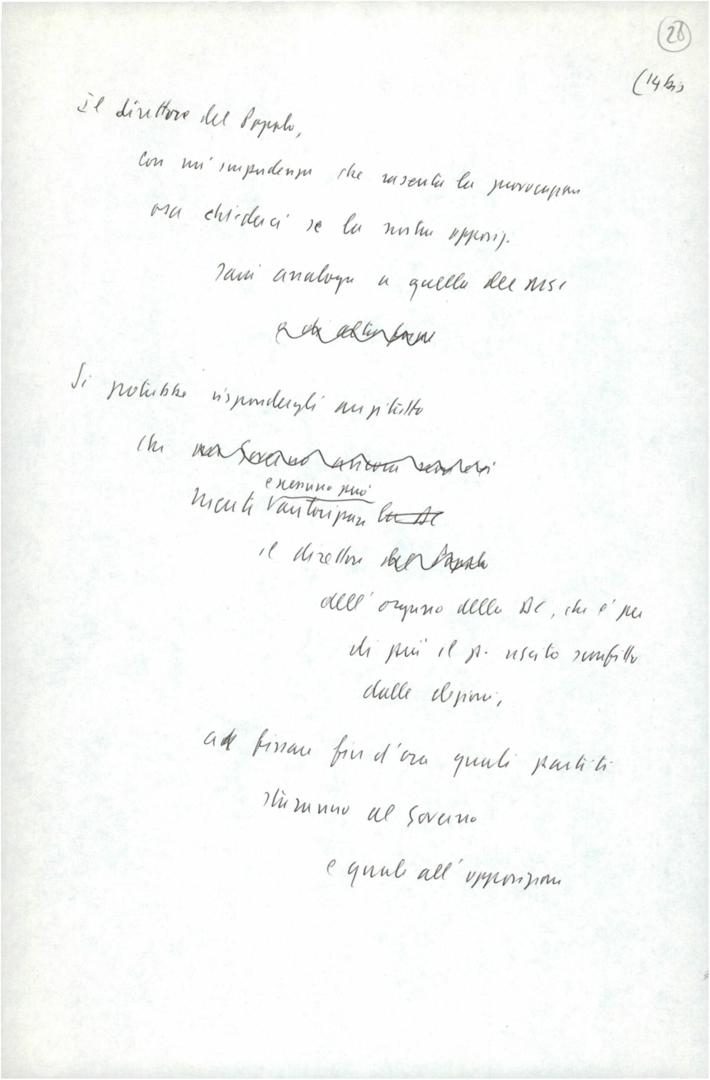 28
(14 bis
Il direttore del Popolo,
con un'impudenza che rasenta la provocazione
osa chiederci se la nostra opposiz.
sarà analoga a quella del MSI
Si potrebbe rispondergli anzitutto
che
e nessuno può
niente l'autorizzare la DC
il direttore del Popolo
dell'organo della DC, che è per
di più il p. uscito sconfitto
dalle elezioni,
a fissare fin d'ora quali partiti
staranno al Governo
e quali all'opposizione